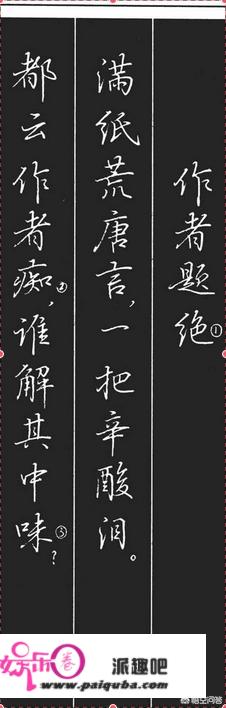 作者题绝①
满纸荒唐言，一把辛酸泪。
都云作者痴②，谁解其中味③？
娱乐圈卷
派趣吧
www.paiquba.com
悟空问答